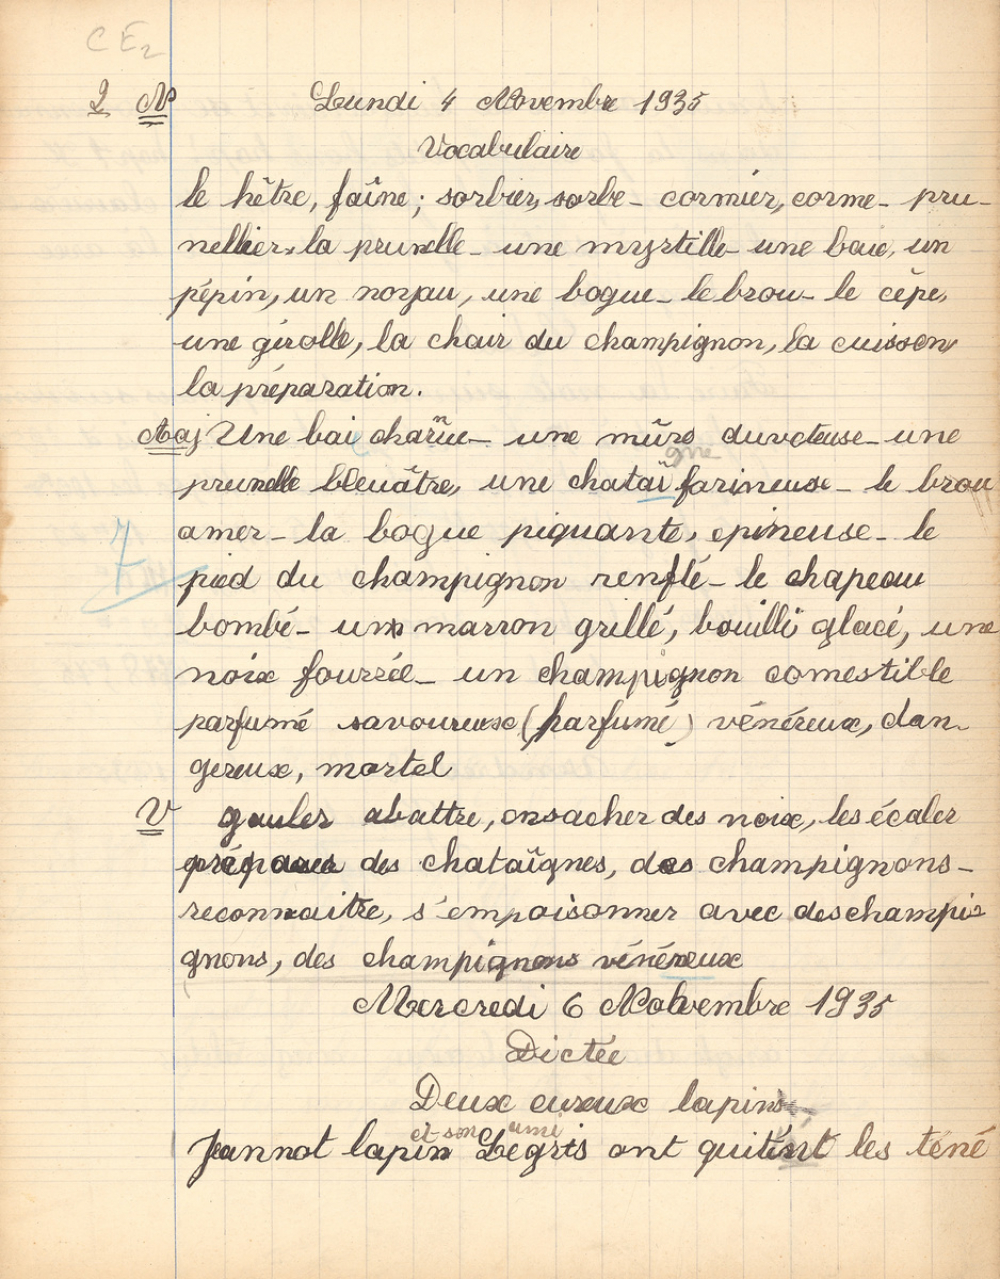 CE2
2 N Lundi 4 Novembre 1935
Vocabulaire
le hêtre, faîne; sorbier, sorbe - cormier, corme - pru-
nellier, la prunelle - une myrtille - une baie, un
pépin, un noyau, une bogue - le brou - le cèpe,
une girolle, la chair du champignon, la cuisson,
la préparation.
Adj Une bai charnue - une mûre duveteuse - une
gne
prunelle bleuâtre, une chataï farineuse - le brou
amer - la bogue piquante, epineuse - le
7
pied du champignon renflé - le chapeau
bombé - un marron grillé, bouilli glacé, une
noix fourrée - un champignon comestible
parfumé savoureuse (parfumé) vénéreux, dan-
gereux, mortel
V gauler abattre, ensacher des noix, les écaler
préparer des chataîgnes, des champignons -
reconnaitre, s'empoisonner avec des champi-
gnons, des champignons vénéreux
Mercredi 6 Novembre 1935
Dictée
Deux eureux lapins
et son ami
Jeannot lapin Legris ont quittent les téné